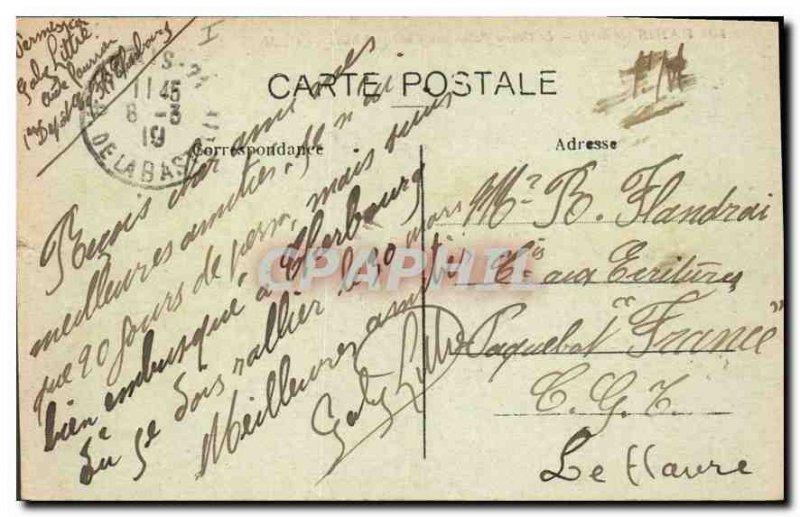 Permission
Gaby Littré
1er Dépôt Cherbourg
S
11 45
8 -3
19
DE LA BAS
I
CARTE POSTALE
F.M
Correspondance
Adresse
Reçois cher ami mes
meilleures amitiés. Je n'ai
que 20 jours de perm, mais suis
bien embusqué à Cherbourg
où je dois rallier le 30 mars
Meilleures amitiés
Gaby Littré
Mr R. Flandrai
Cis aux Ecritures
Paquebot "France"
C. G. T.
Le Havre
CPAPHIL